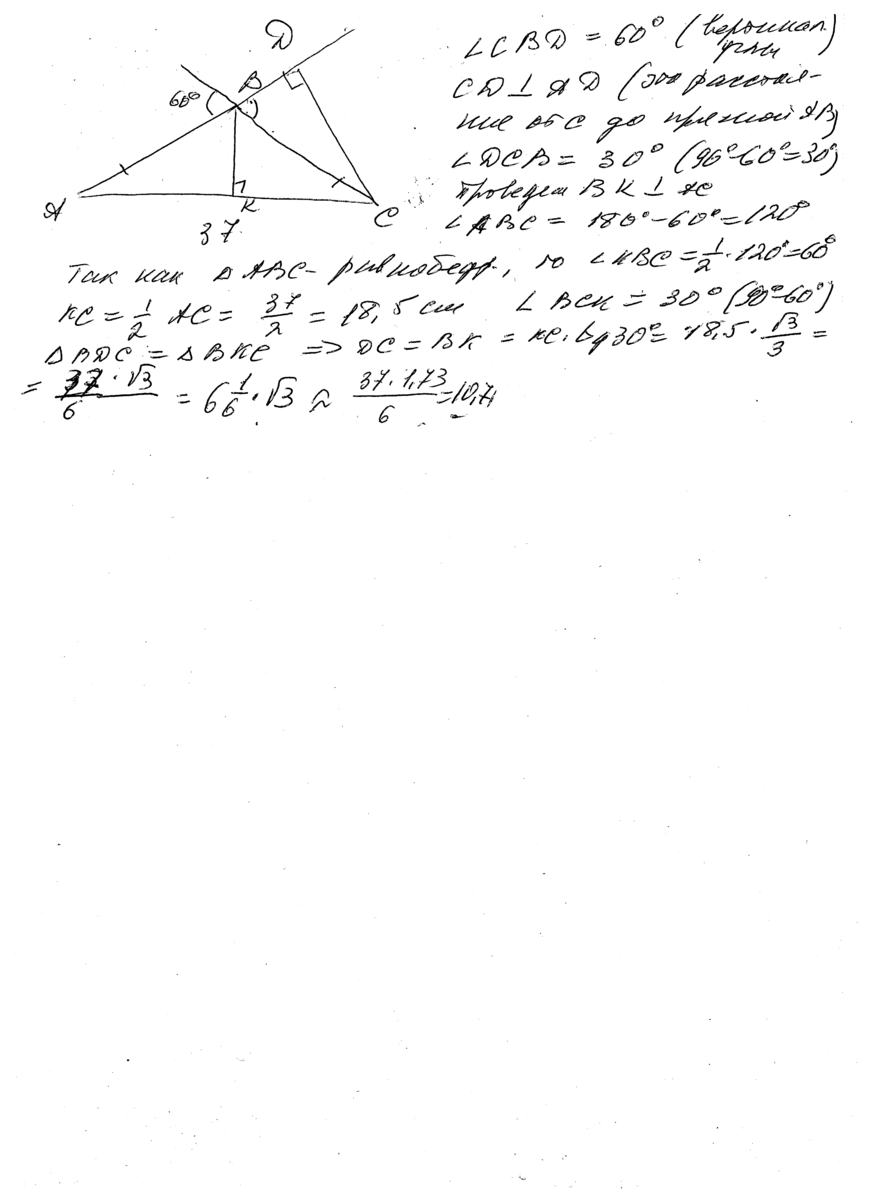 D
B
60°
A
K
C
37
∠CBD = 60° (вертикал. углы)
CD ⊥ AD (это расстоя-
ние от C до прямой AB)
∠DCB = 30° (90°-60°=30°)
Проведем BK ⊥ AC
∠ABC = 180°-60°=120°
Так как △ABC - равнобедр., то ∠KBC = 1/2 · 120° = 60°
KC = 1/2 AC = 37/2 = 18,5 см ∠BCK = 30° (90°-60°)
△BDC = △BKC => DC = BK = KC · tg30° = 18,5 · √3/3 =
= 37 · √3/6 = 6 1/6 · √3 ≈ 37 · 1,73/6 = 10,7